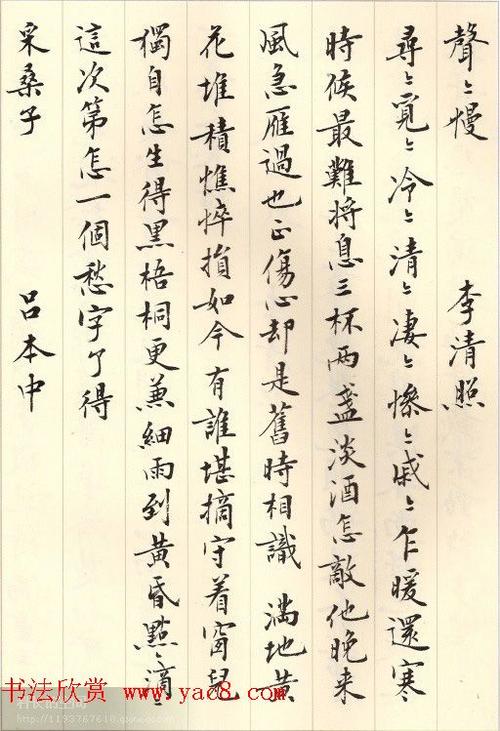 聲〻慢 李清照
尋〻覓〻冷〻清〻凄〻慘〻戚〻乍暖還寒
時候最難将息三杯兩盞淡酒怎敵他晚来
風急雁過也正傷心却是舊時相識 滿地黄
花堆積憔悴損如今有誰堪摘守着窗兒
獨自怎生得黑梧桐更兼細雨到黄昏點〻滴〻
這次第怎一個愁字了得
采桑子 吕本中
书法欣赏 www.yac8.com